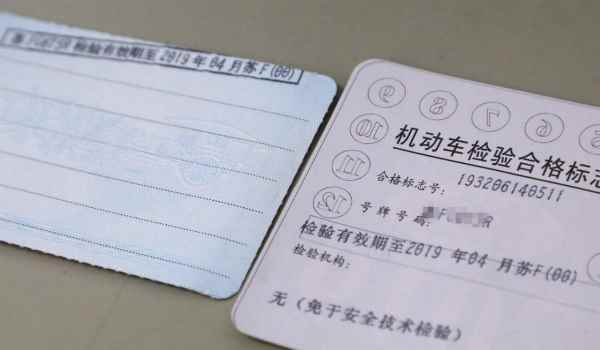 检验有效期至 2019 年 04 月苏F(00)
9 8 7 6 5
10
机动车检验合格标志
11
合格标志号: 193206140511
12
号 牌 号 码:
检验有效期至2019 年 04 月苏F(00)
检验机构:
无(免于安全技术检验)